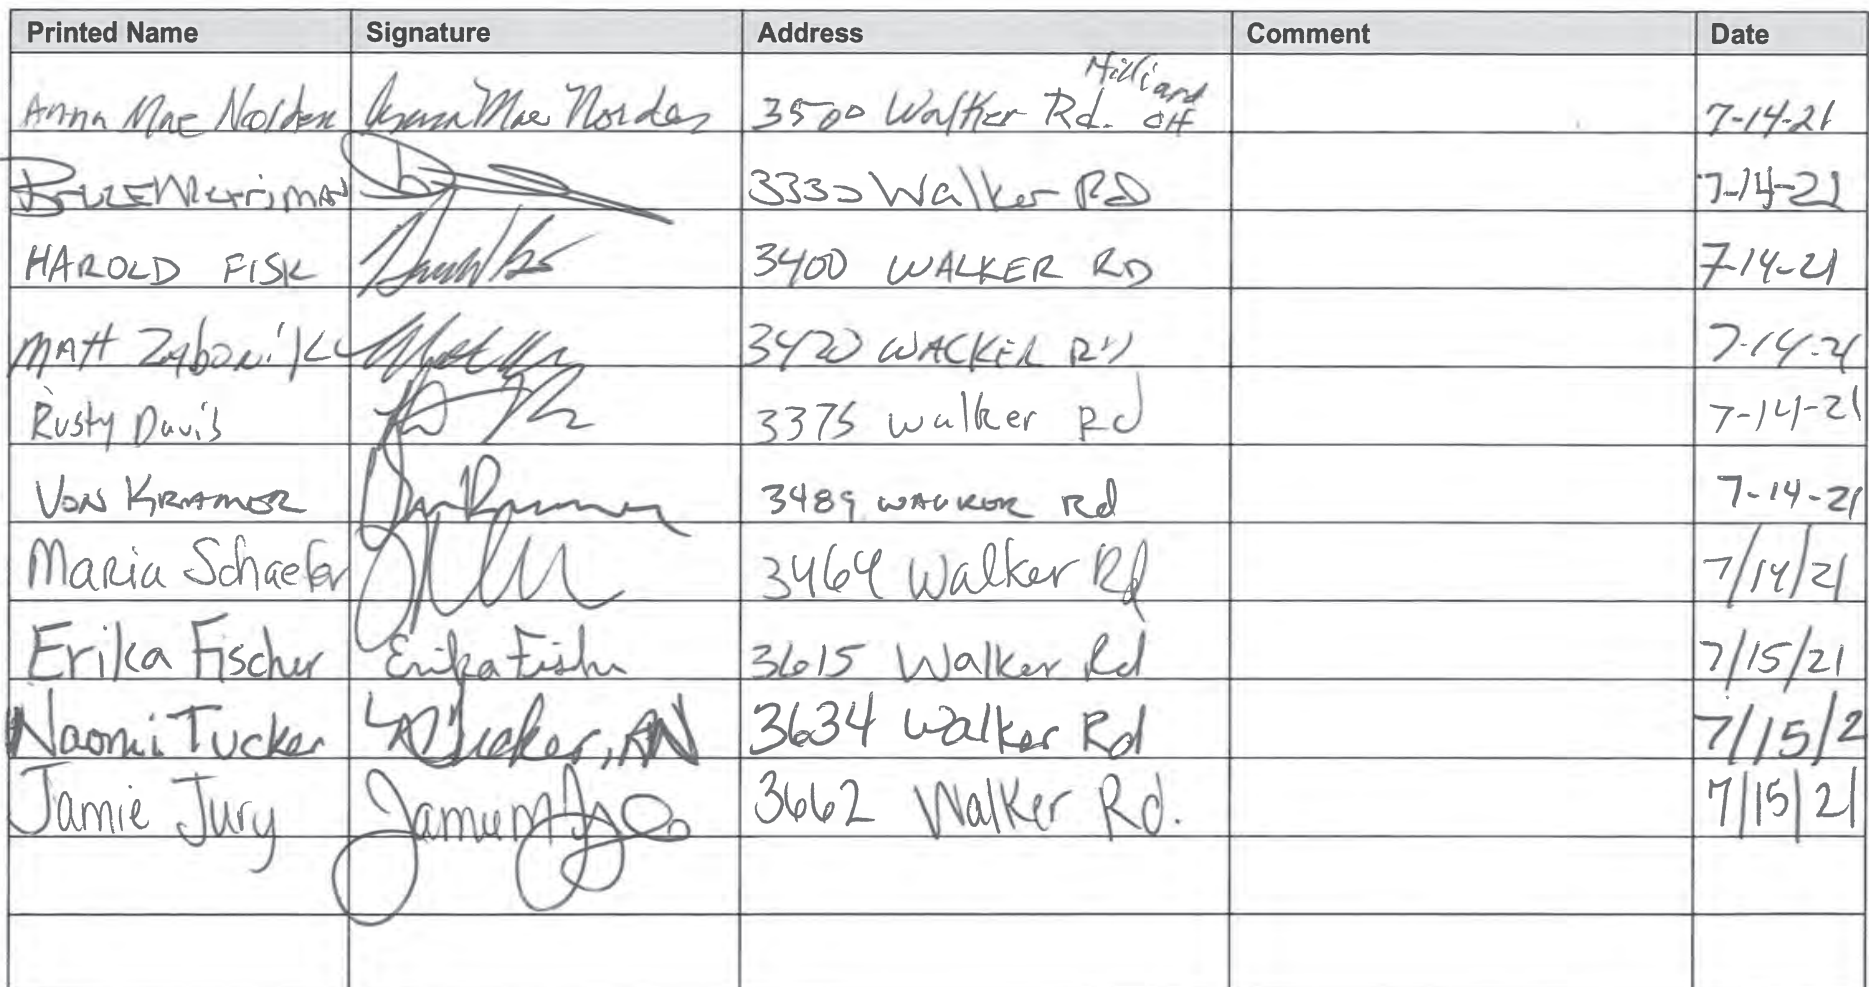 Printed Name Signature Address Comment Date
Anna Mae Norden Anna Mae Norden 3500 Walker Rd. Hilliard OH 7-14-21
Bruce Merriman 3330 Walker RD 7-14-21
HAROLD FISK 3400 WALKER RD 7-14-21
MATT 3420 WALKER RD 7-14-21
Rusty Davis 3375 Walker Rd 7-14-21
VON KRAMER Von Kramer 3489 WALKER Rd 7-14-21
Maria Schaefer 3464 Walker Rd 7/14/21
Erika Fischer Erika Fischer 3615 Walker Rd 7/15/21
Naomi Tucker NTucker, RN 3634 Walker Rd 7/15/2
Jamie Jury Jamie M Jury 3662 Walker Rd. 7/15/21